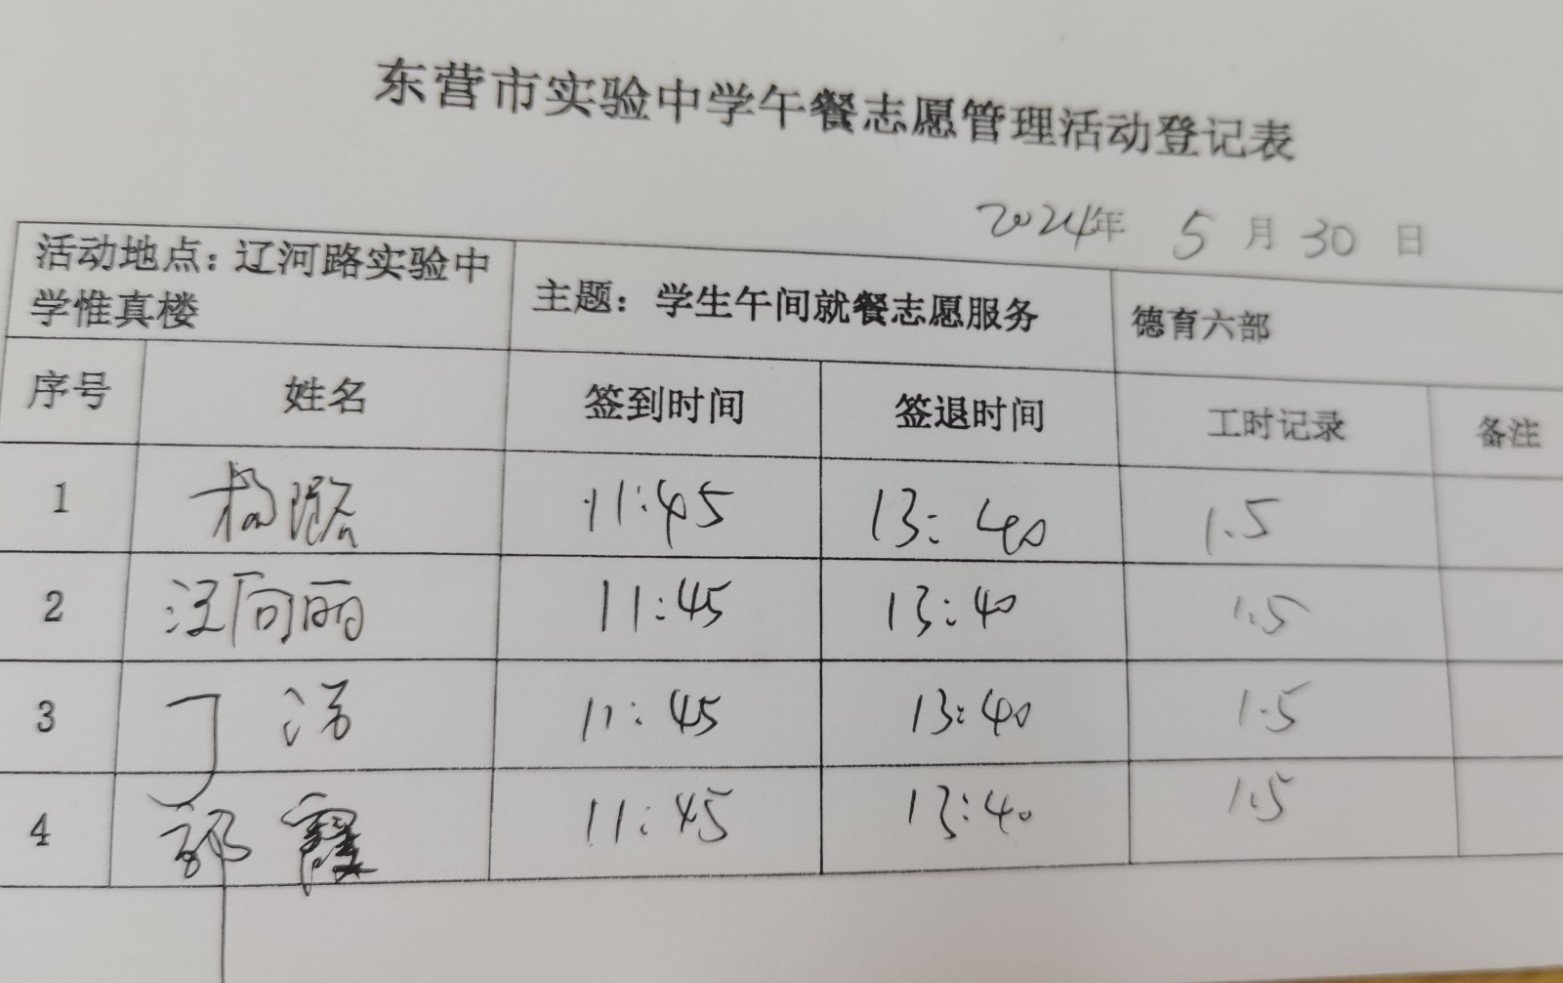 东营市实验中学午餐志愿管理活动登记表
2024年 5月30日
活动地点：辽河路实验中
学惟真楼
主题：学生午间就餐志愿服务
德育六部
序号 姓名 签到时间 签退时间 工时记录 备注
1 杨 11:45 13:40 1.5
2 汪向丽 11:45 13:40 1.5
3 丁 11:45 13:40 1.5
4 郭霞 11:45 13:40 1.5